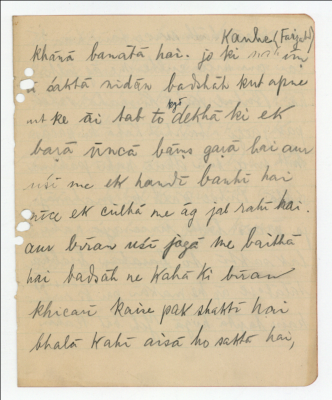 Kanhe (Farjah)
khānā banātā hai. jo ki nahīṇ
ā śaktā nidān badshāh kut apne
ut ke āi tab to kyā dekhā ki ek
baṛā ūncā bāṇs gaṛā hai aur
usī me ek handī banhī hai
nīce ek cūlhā me āg jal rahī hai.
aur bīraw usī jagā me baithā
hai badśāh ne kahā ki bīraw
khicarī kaise pak shaktī hai
bhalā kahī aisā ho saktā hai,